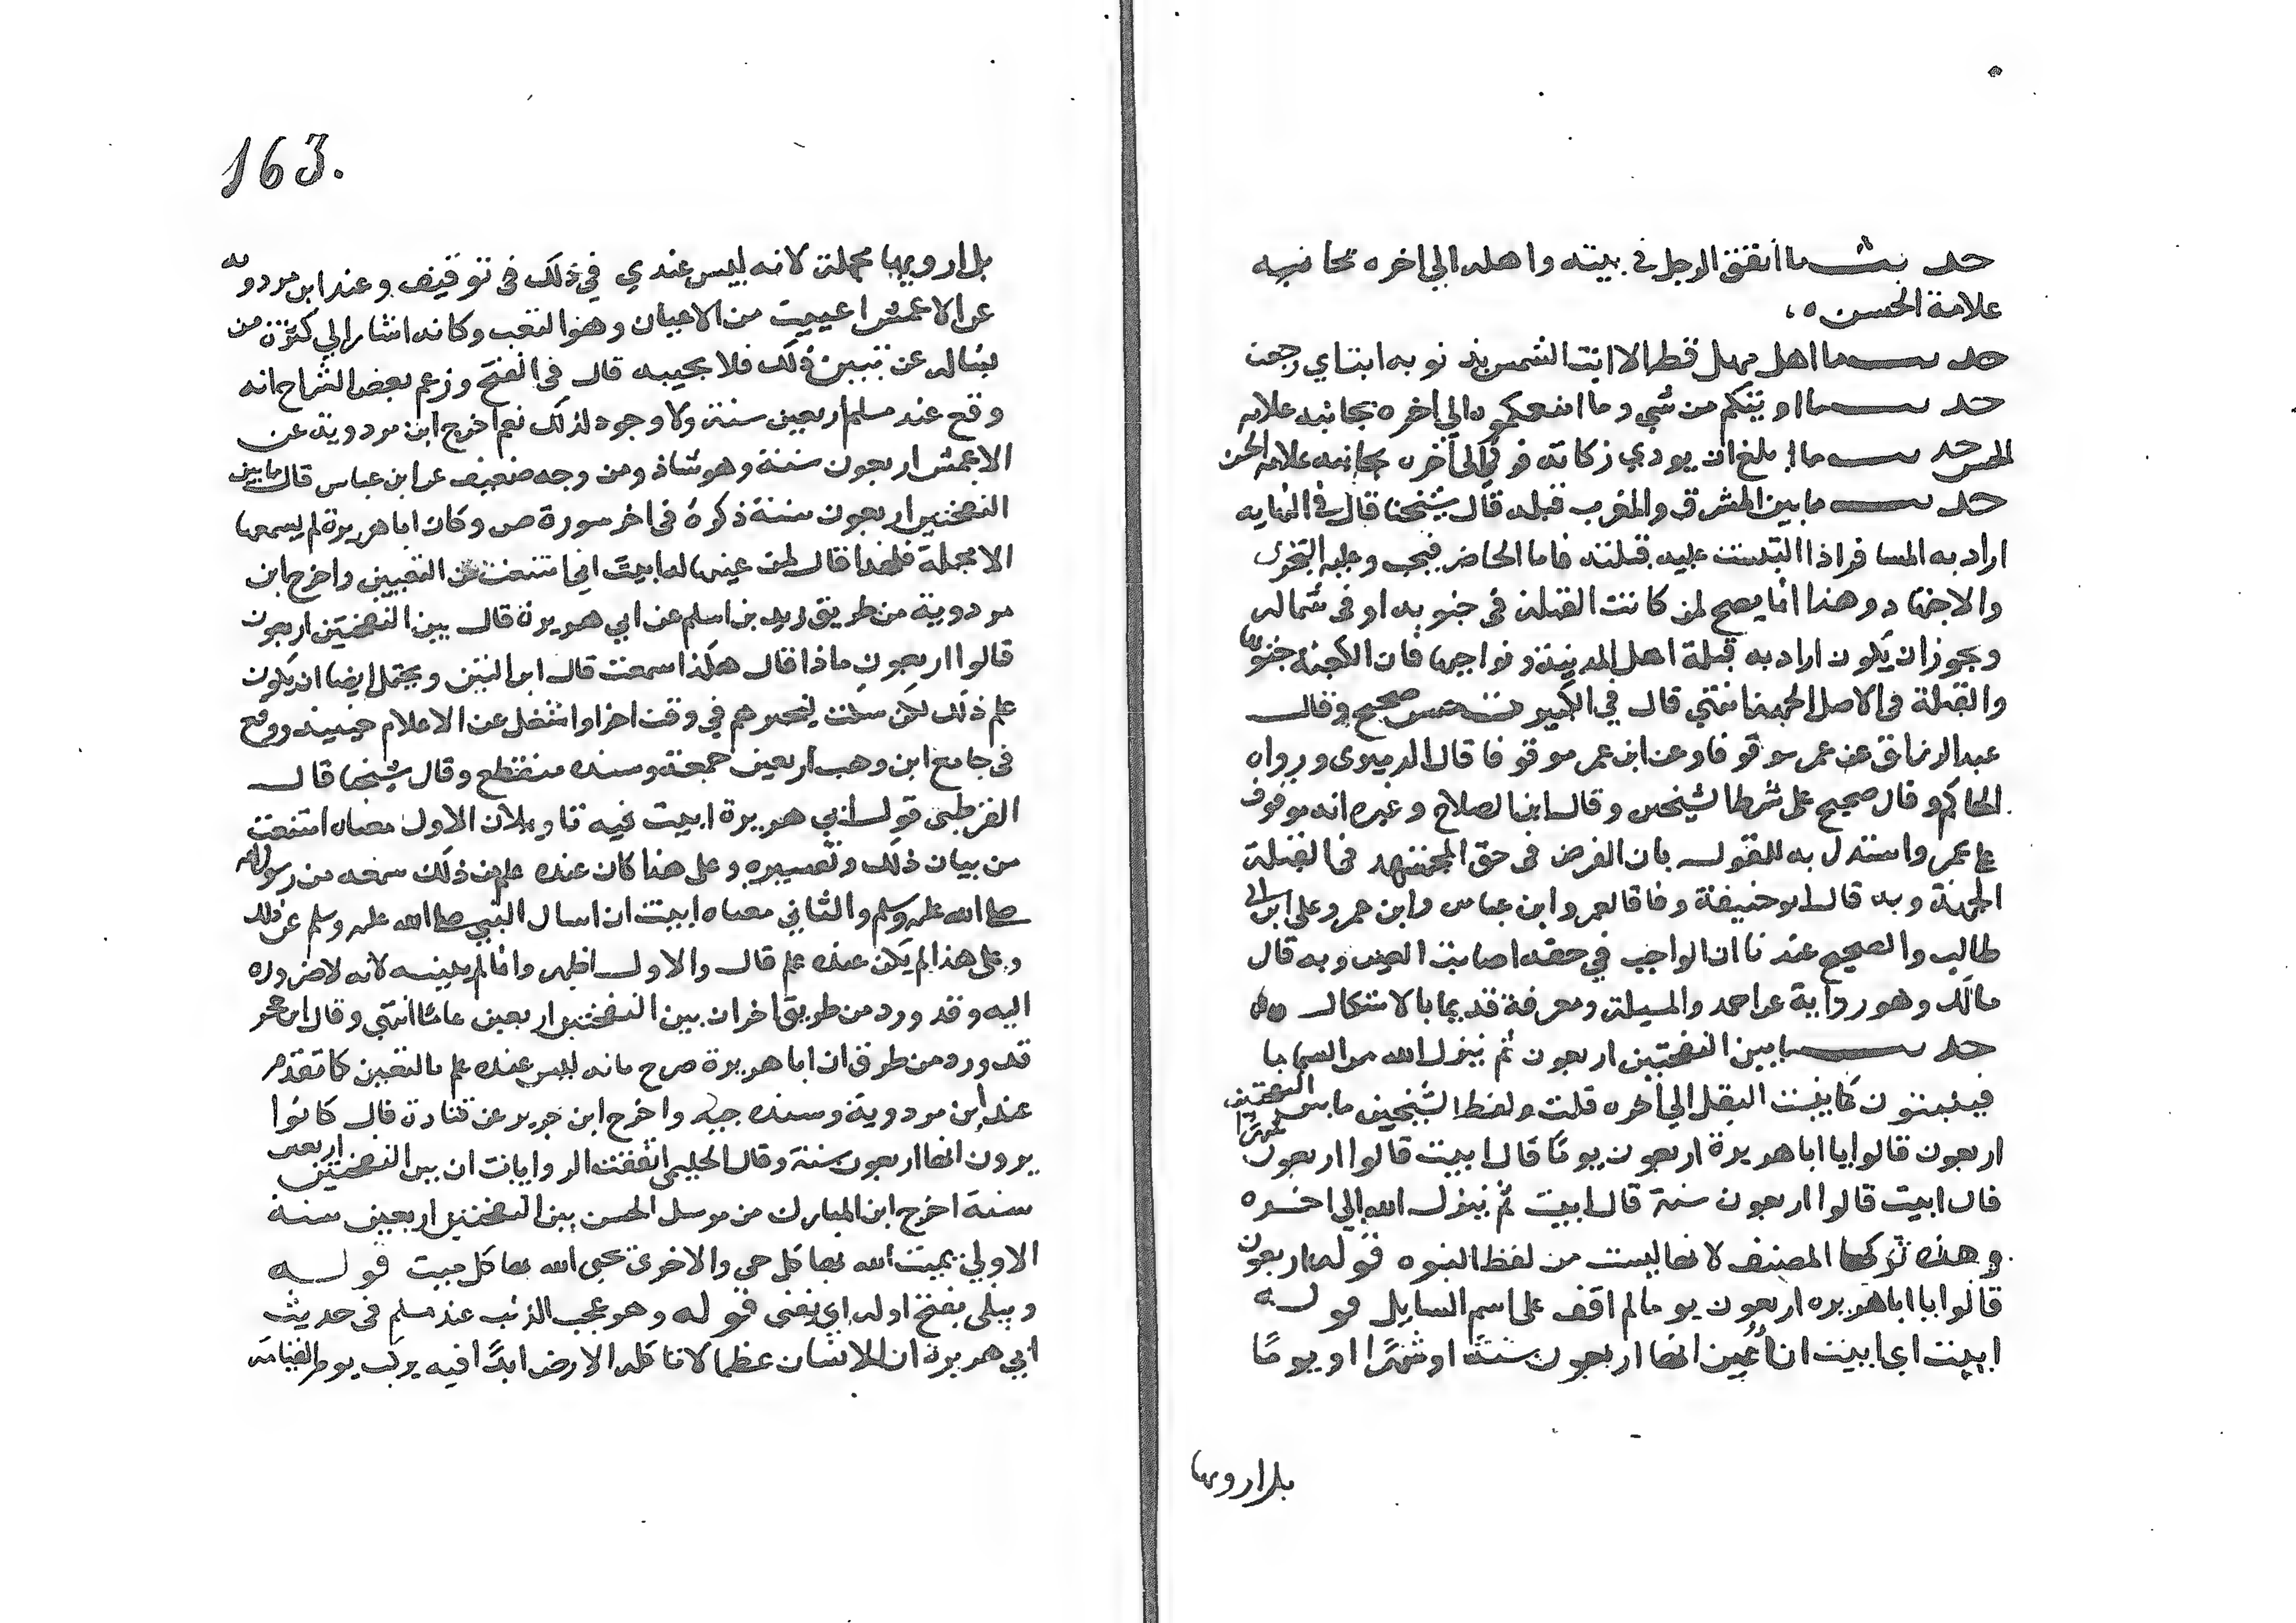 حديث ما أنفق الرجل في بيته واهله الي اخره بجانبه
علامة الحسن ه
حديث ما اهل مهل قط الا ابت الشمس بذنوبه ابت اي رجعت
حديث ما اوتيكم من شي وما امنعكموه الي اخره بجانبه علامة
الحسن حديث ما بلغ ان يودي زكاته فزكي الي آخره بجانبه علامة الحسن
حديث ما بين المشرق والمغرب قبله قال شيخنا قال في النهايه
اراد به المسافر اذا التبست عليه قبلته فاما الحاضر فيجب وعليه التحري
والاجتهاد وهذا انما يصح لمن كانت القبلة في جنوبه او في شماله
ويجوز ان يكون اراد به قبلة اهل المدينة ونواحيها فان الكعبة جنوبها
والقبلة في الاصل الجهة انتهي قال في الكبير ت حسن صحيح وقال
عبد الرزاق عن عمر موقوفا وعن ابن عمر موقوفا قال الدميري ورواه
الحاكم وقال صحيح على شرط الشيخين وقال ابن الصلاح وغيره انه موقوف
على عمر واستدل به للقول بان الفرض في حق المجتهد في القبلة
الجهة وبه قال ابو حنيفة وفاقا لعمر وابن عباس وابن عمر وعلى ابن ابي
طالب والصحيح عندنا ان الواجب في حقه اصابت العين وبه قال
مالك وهو رواية عن احمد والمسيلة ومعرفة قديما بالاشكال ه ه
حديث ما بين النفختين اربعون ثم ينزل الله من السما ما
فينبتون كما ينبت البقل الي آخره قلت ولفظ الشيخين ما بين النفختين
اربعون قالوا يا ابا هريرة اربعون يومًا قال ابيت قالوا اربعون شهرًا
قال ابيت قالوا اربعون سنة قال ابيت ثم ينزل الله الي اخره
وهذه تركها المصنف لانها ليست من لفظ النبوه قوله اربعون
قالوا يا ابا هريره اربعون يوما لم اقف على اسم السايل قوله
ابيت اي ابيت ان أُعين انها اربعون سنة او شهرًا او يومًا
بل ارويها
163.
بل ارويها مجملة لانه ليس عندي في ذلك توقيف وعند ابن مردويه
عن الاعمش اعييت من الاعيان وهو التعب وكانه اشار الي كثرة من
يساله عن تبيين ذلك فلا يجيبه قال في الفتح وزعم بعض الشراح انه
وقع عند مسلم اربعين سنة ولا وجود لذلك نعم اخرج ابن مردوية عن
الاعمش اربعون سنة وهو شاذ ومن وجه ضعيف عن ابن عباس قال ما بين
النفختين اربعون سنة ذكره في اخر سورة ص وكان ابا هريرة لم يسمعها
الا مجملة فلهذا قال لمن عينها له ابيت اي امتنعت عن التعيين واخرج ابن
مردوية من طريق زيد بن اسلم عن ابي هريرة قال بين النفختين اربعون
قالوا اربعون ماذا قال هكذا سمعت قال ابن التين ويحتمل ايضا ان يكون
علم ذلك لكن سكت ليخبرهم في وقت اخر او اشتغل عن الاعلام حينيذ ووقع
في جامع ابن وهب اربعين جمعة وسنده منقطع وقال شيخنا قال
القرطبي قول ابي هريرة ابيت فيه تاويلان الاول معناه امتنعت
من بيان ذلك وتفسيره وعلى هذا كان عنده علم من ذلك سمعه من رسول الله
صلى الله عليه وسلم والثاني معناه ابيت ان اسال النبي صلى الله عليه وسلم عن ذلك
وعلى هذا لم يكن عنده علم قال والاول اظهر وانما لم يبينه لانه لا ضروره
اليه وقد ورد من طريق اخر ان بين النفختين اربعين عاما انتهي وقال ابن حجر
قد ورد من طرق ان ابا هريرة صرح بانه ليس عنده علم بالتعيين كما تقدم
عند ابن مردوية وسنده جيد واخرج ابن جرير عن قتادة قال كانوا
يرون انها اربعون سنة وقال الحليمي اتفقت الروايات ان بين النفختين اربعين
سنة اخرج ابن المبارك من مرسل الحسن بين النفختين اربعين سنة
الاولي يميت الله بها كل حي والاخرى يحيى الله بها كل ميت قوله
ويبلى بفتح اوله اي يفنى قوله وهو عجب الذنب عند مسلم في حديث
ابي هريرة ان للانسان عظما لا تاكله الارض ابدًا فيه يركب يوم القيامة